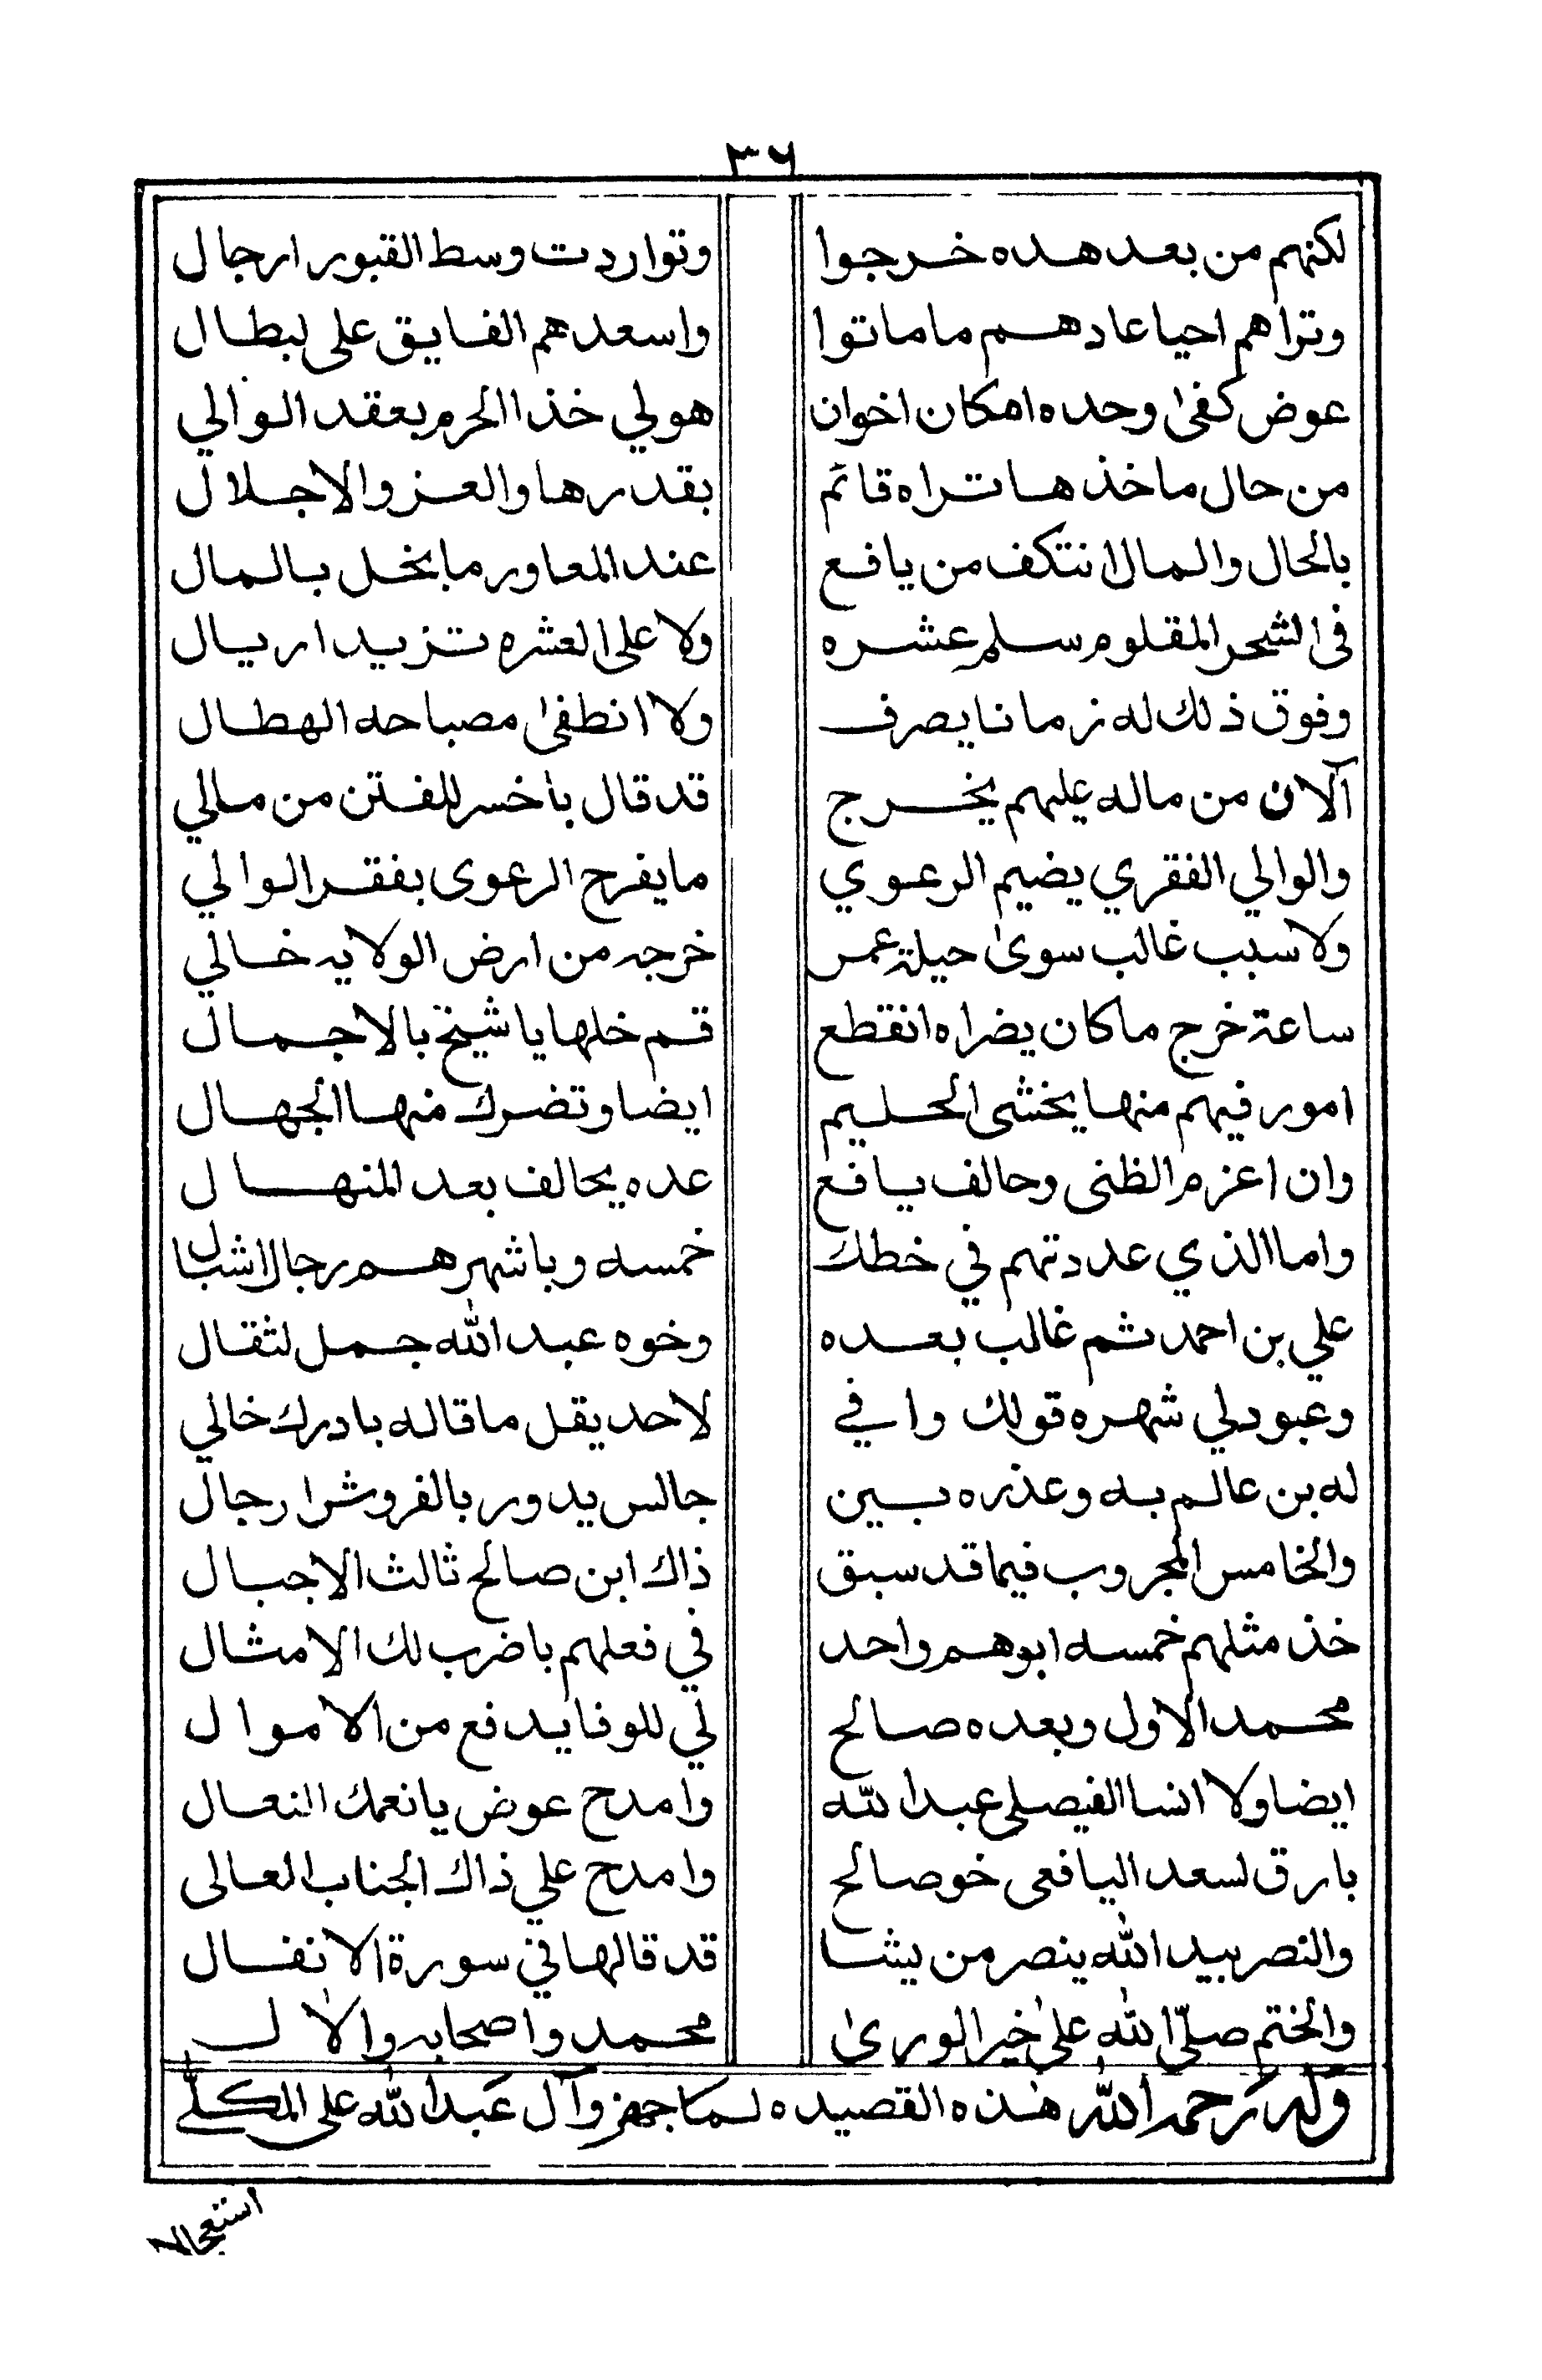 ٣٦
لكنهم من بعد هده خرجوا وتواردت وسط القبور ارجال
وتراهم احيا عادهم ماماتوا واسعدهم الفايق على لبطال
عوض كفى وحده امكان اخوان هولي خذا الحرم بعقد الوالي
من حال ماخذها تراه قائم بقدرها والعز والاجلال
بالحال والمال انتكف من يافع عند المعاور مابخل بالمال
فى الشحر المقلوم سلم عشره ولا على العشره تزيد اريال
وفوق ذلك له زمانا يصرف ولا انطفى مصباحه الهطال
آلان من ماله عليهم يخرج قد قال باخسر للفتن من مالي
والوالي الفقري يضيم الرعوي مايفرح الرعوى بفقر الوالي
ولا سبب غالب سوى حيلة عمر خرجه من ارض الولايه خالي
ساعة خرج ماكان يضراه انقطع قم خلها يا شيخ بالاجمال
امور فيهم منها يخشى الحليم ايضا وتضرك منها الجهال
وان اعزم الظنى وحالف يافع عده يحالف بعد المنهال
واما الذي عددتهم في خطك خمسه وباشهرهم رجال اشبال
علي بن احمد ثم غالب بعده وخوه عبد الله جمل لثقال
وعبود لي شهره قولك وافي لاحد يقل ماقاله بادرك خالي
له بن عالم به وعذره بين جالس يدور بالفروش ارجال
والخامس المجروب فيما قد سبق ذاك ابن صالح ثالث الاجبال
خذ مثلهم خمسه ابوهم واحد في فعلهم باضرب لك الامثال
محمد الاول وبعده صالح لي للوفا يدفع من الاموال
ايضا ولا انسا الفيصلي عبد الله وامدح عوض يانعمك النعال
بارق لسعد اليافعى خو صالح وامدح علي ذاك الجناب العالى
والنصر بيد الله ينصر من يشا قد قالها في سورة الانفال
والختم صلّى الله على خير الورى محمد واصحابه والال
وله رحمه الله هذه القصيده لما جهزوا آل عبد الله على المكلّى